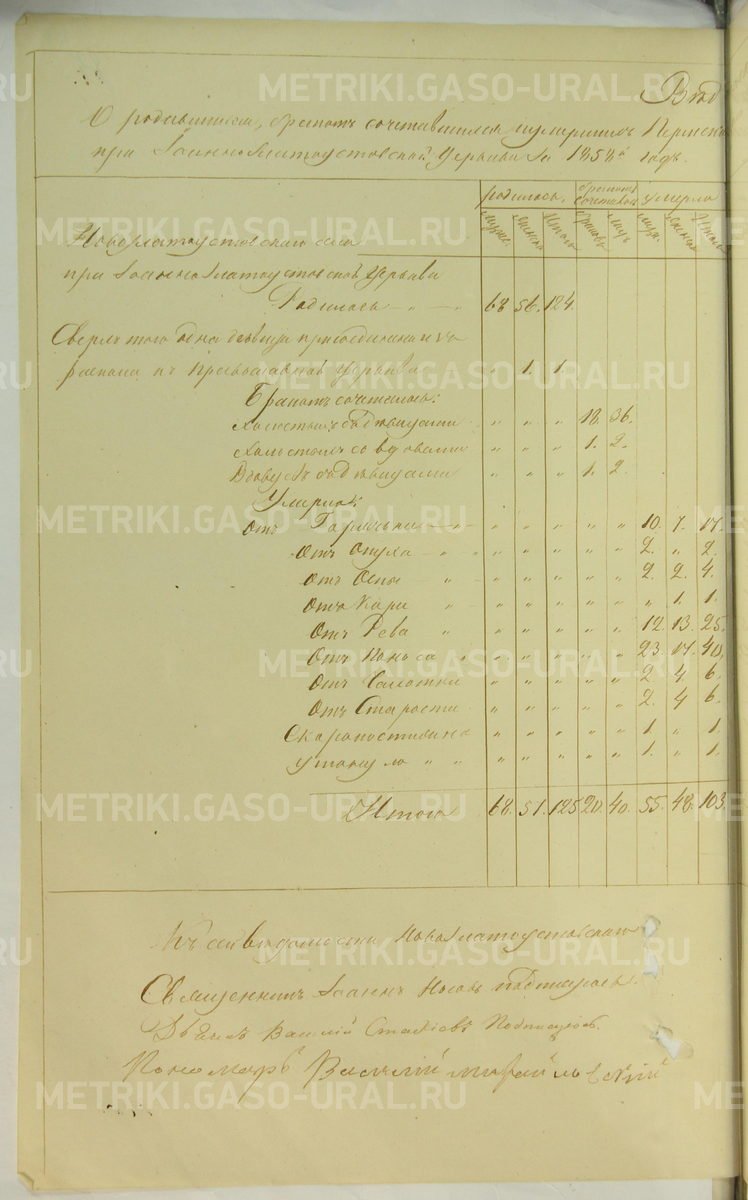 Вѣд
О родившихся, бракомъ сочетавшихся, умершихъ Пермск
при Іоанно Златоустовской Церкви за 1858й годъ.
родилось. бракомъ сочеталось умерло
мужес. женска Итого браковъ лицъ муж. женска Итого
Новозлатоустовскаго села
при Іоанно Златоустовской Церкви
Родилось — „ — „ 68. 56. 124.
Сверхъ того одна девица присоединена изъ
раскола къ Православной Церкви „ „ 1. 1.
Бракомъ сочеталось:
Холостыхъ съ девицами „ „ „ 18. 36.
Холостыхъ со вдовами „ „ „ 1. 2.
Вдовухъ съ девицами „ „ „ 1. 2.
Умерло:
Отъ Горячьки — „ „ „ „ „ „ 10. 7. 17.
Отъ Опуха „ „ „ „ „ „ „ 2. „ 2.
Отъ Оспы „ „ „ „ „ „ 2. 2. 4.
Отъ Кори „ „ „ „ „ „ „ 1. 1.
Отъ Рева „ „ „ „ „ „ 12. 13. 25.
Отъ Поноса „ „ „ „ „ „ 23. 17. 40.
Отъ Чахотки „ „ „ „ „ 2. 4. 6.
Отъ Старости „ „ „ „ „ 2. 4 6.
Скоропостижно „ „ „ „ „ 1. „ 1.
утонуло „ „ „ „ „ „ „ 1. „ 1.
Итого 68. 51. 125 20. 40. 55. 48. 103.
Къ сей вѣдомости Новозлатоустовскаго
Священникъ Іоаннъ Носовъ подписуюсь.
Дьячекъ Василій Стахіевъ Подписуюсь.
Пономарь Василій
METRIKI.GASO-URAL.RU